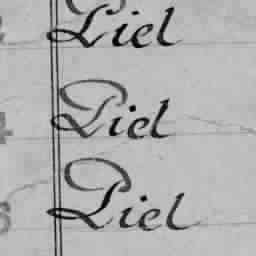 Piel
4 Piel
Piel